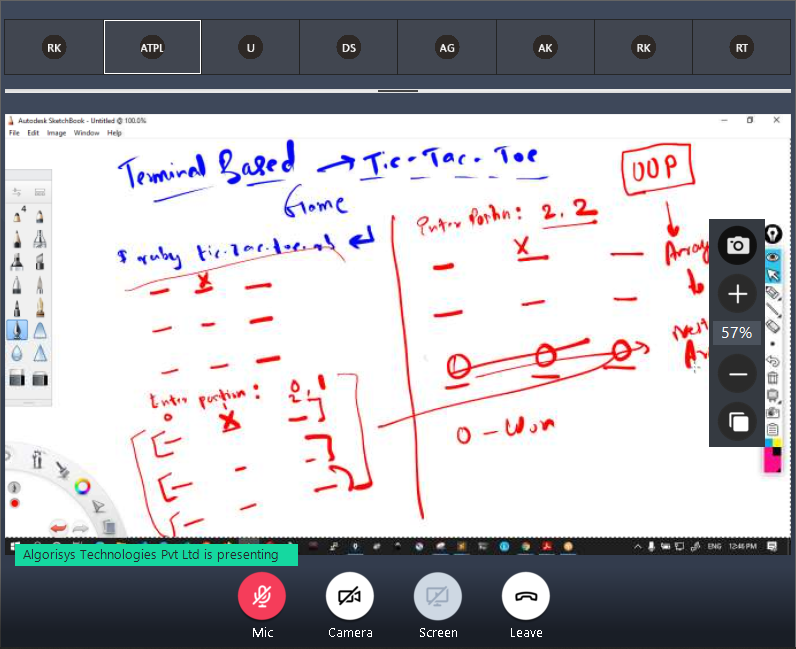 RK
ATPL
U
DS
AG
AK
RK
RT
Autodesk SketchBook - Untitled @ 100.0%
File Edit Image Window Help
Terminal Based → Tic-Tac-Toe
Game
$ ruby tic-tac-toe.rb
X
Enter position: 0, 1
2,
0 X
Enter Positn: 2, 2
X
O O O
O - Won
OOP
Array
Nest
Ar
57%
4
ENG 12:46 PM
Algorisys Technologies Pvt Ltd is presenting
Mic
Camera
Screen
Leave